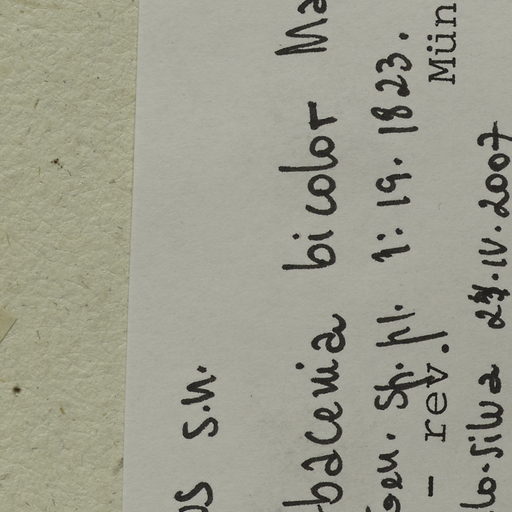 os s.n.
bacenia bicolor Ma
Gen. Sp. pl. 1: 19. 1823.
- rev. Mün
lo-silva 24.IV.2007